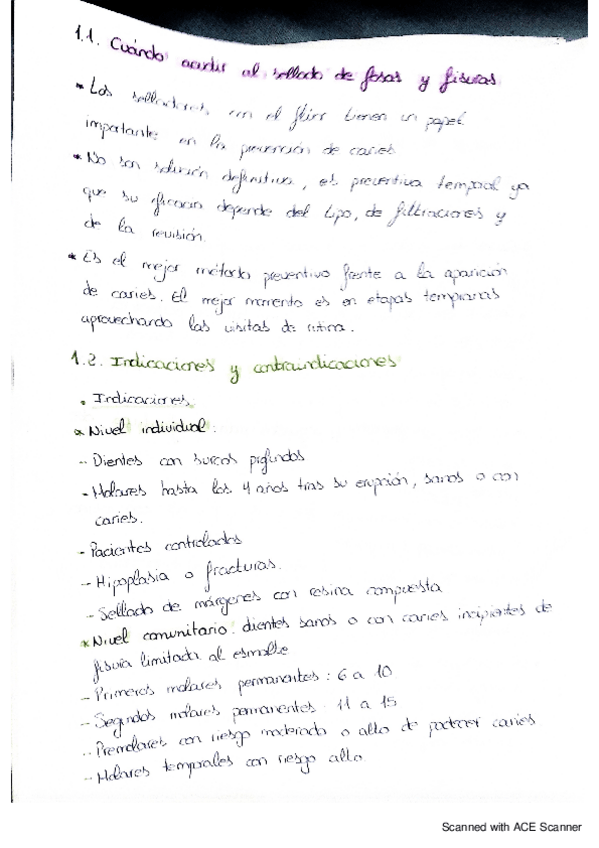 1.1. Cuándo acudir al sellado de fosas y fisuras
* Los selladores con el flúor tienen un papel
importante en la prevención de caries
* No son solución definitiva, es preventiva temporal ya
que su eficacia depende del tipo, de filtraciones y
de la revisión.
* Es el mejor método preventivo frente a la aparición
de caries. El mejor momento es en etapas tempranas
aprovechando las visitas de rutina.
1.2. Indicaciones y contraindicaciones
• Indicaciones
* Nivel individual:
- Dientes con surcos profundos
- Molares hasta los 4 años tras su erupción, sanos o con
caries.
- Pacientes controlados
- Hipoplasia o fracturas.
- Sellado de márgenes con resina compuesta
* Nivel comunitario: dientes sanos o con caries incipientes de
fisura limitada al esmalte
- Primeros molares permanentes: 6 a 10
- Segundos molares permanentes: 11 a 15
- Premolares con riesgo moderado o alto de padecer caries
- Molares temporales con riesgo alto
Scanned with ACE Scanner